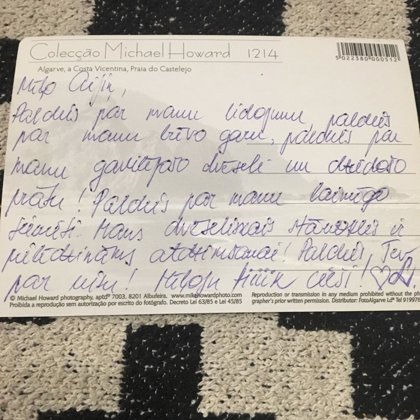 Colecção Michael Howard 1214
Algarve, a Costa Vicentina, Praia do Castelejo
5022380000512
Mīļo
Paldies par manu lidojumu, paldies
par manu brīvo garu, paldies par
manu gavilējošo dvēseli un dziedošo
prātu! Paldies par manu laimīgo
Mans dvēseliskais stāvoklis ir
Paldies Tev
par
© Michael Howard photography, aptdº 7003, 8201 Albufeira, www.mikehowardphoto.com
Reproduction or transmission in any medium prohibited without the
Proibida a reprodução sem autorização por escrito do fotógrafo. Decreto Lei 63/85 e Lei 45/85
grapher's prior written permission. Distributor: FotoAlgarve Ldª Tel 91997